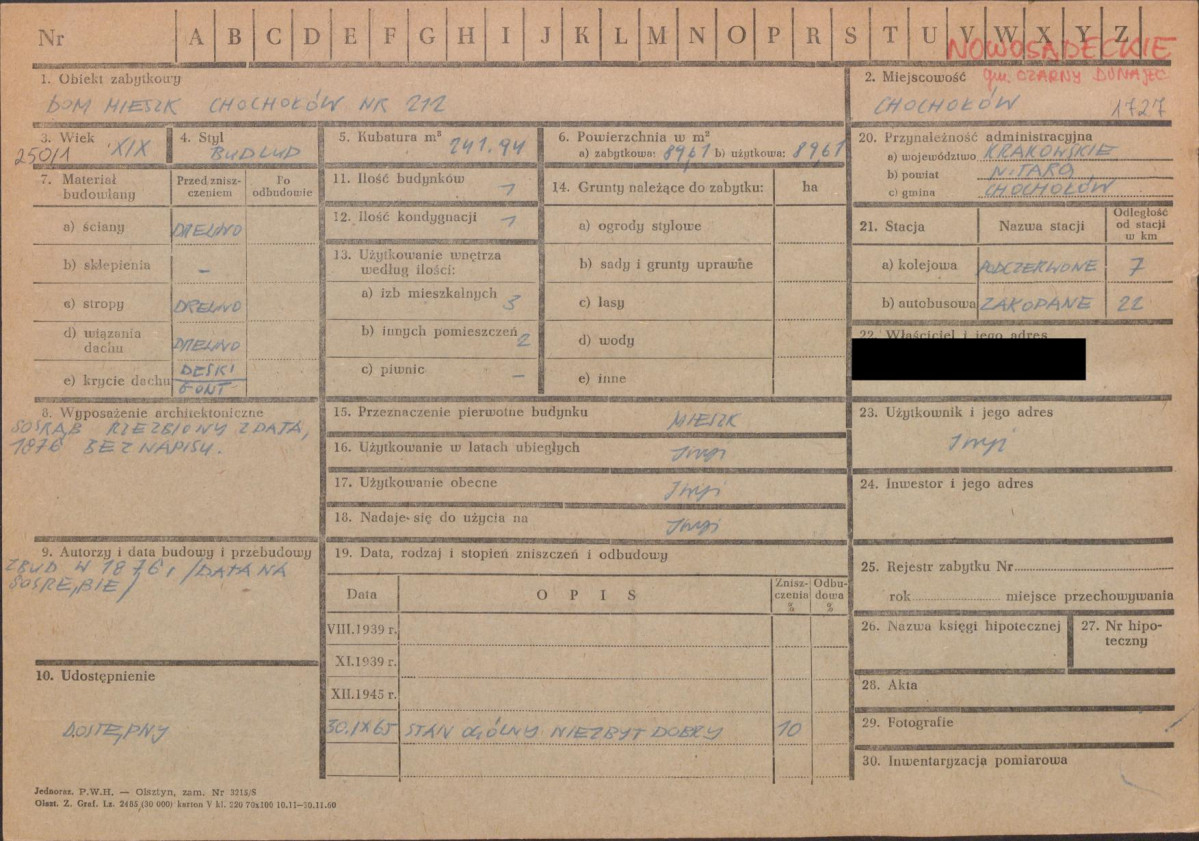 Nr A B C D E F G H I J K L M N O P R S T U V W X Y Z
NOWOSĄDECKIE
gm. CZARNY DUNAJEC
1. Obiekt zabytkowy
DOM MIESZK CHOCHOŁÓW NR 212
2. Miejscowość
CHOCHOŁÓW 1727
3. Wiek XIX
250/1
4. Styl
BUD LUD
5. Kubatura m³ 241.94
6. Powierzchnia w m²
a) zabytkowa: 89,61 b) użytkowa: 89,61
7. Materiał budowlany
Przed zniszczeniem
Po odbudowie
a) ściany DREWNO
b) sklepienia –
c) stropy DREWNO
d) wiązania dachu DREWNO
e) krycie dachu DESKI
GONT
8. Wyposażenie architektoniczne
SOSRĄB RZEZBIONY Z DATĄ,
1876 BEZ NAPISU.
9. Autorzy i data budowy i przebudowy
ZBUD W 1876 r /DATA NA
SOSRĘBIE/
10. Udostępnienie
DOSTĘPNY
11. Ilość budynków 1
12. Ilość kondygnacji 1
13. Użytkowanie wnętrza
według ilości:
a) izb mieszkalnych 3
b) innych pomieszczeń 2
c) piwnic –
14. Grunty należące do zabytku: ha
a) ogrody stylowe
b) sady i grunty uprawne
c) lasy
d) wody
e) inne
15. Przeznaczenie pierwotne budynku MIESZK
16. Użytkowanie w latach ubiegłych
17. Użytkowanie obecne
18. Nadaje się do użycia na
19. Data, rodzaj i stopień zniszczeń i odbudowy
Data OPIS Zniszczenia % Odbudowa %
VIII.1939 r.
XI.1939 r.
XII.1945 r.
30.IX 65 STAN OGÓLNY NIEZBYT DOBRY 10
20. Przynależność administracyjna
a) województwo KRAKOWSKIE
b) powiat N.TARG
c) gmina CHOCHOŁÓW
21. Stacja Nazwa stacji Odległość od stacji w km
a) kolejowa PODCZERWONE 7
b) autobusowa ZAKOPANE 22
22. Właściciel i jego adres
23. Użytkownik i jego adres
24. Inwestor i jego adres
25. Rejestr zabytku Nr
rok miejsce przechowywania
26. Nazwa księgi hipotecznej
27. Nr hipoteczny
28. Akta
29. Fotografie
30. Inwentaryzacja pomiarowa
Jednoraz. P.W.H. — Olsztyn, zam. Nr 3215/S
Olszt. Z. Graf. Lz. 2485 (30 000) karton V kl. 220 70x100 10.11—20.11.60